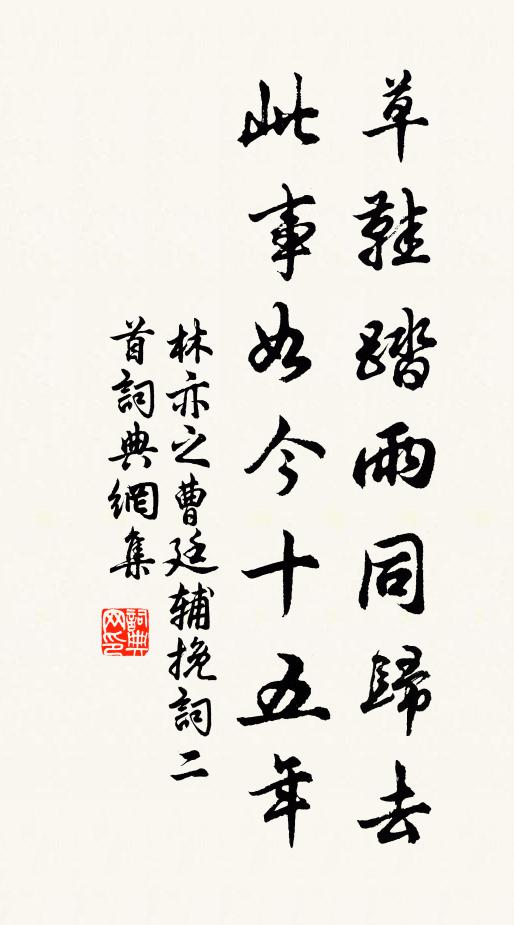 草鞋踏雨同歸去
此事如今十五年
林亦之曹廷辅挽詞二
首詞典網集
詞典
网印